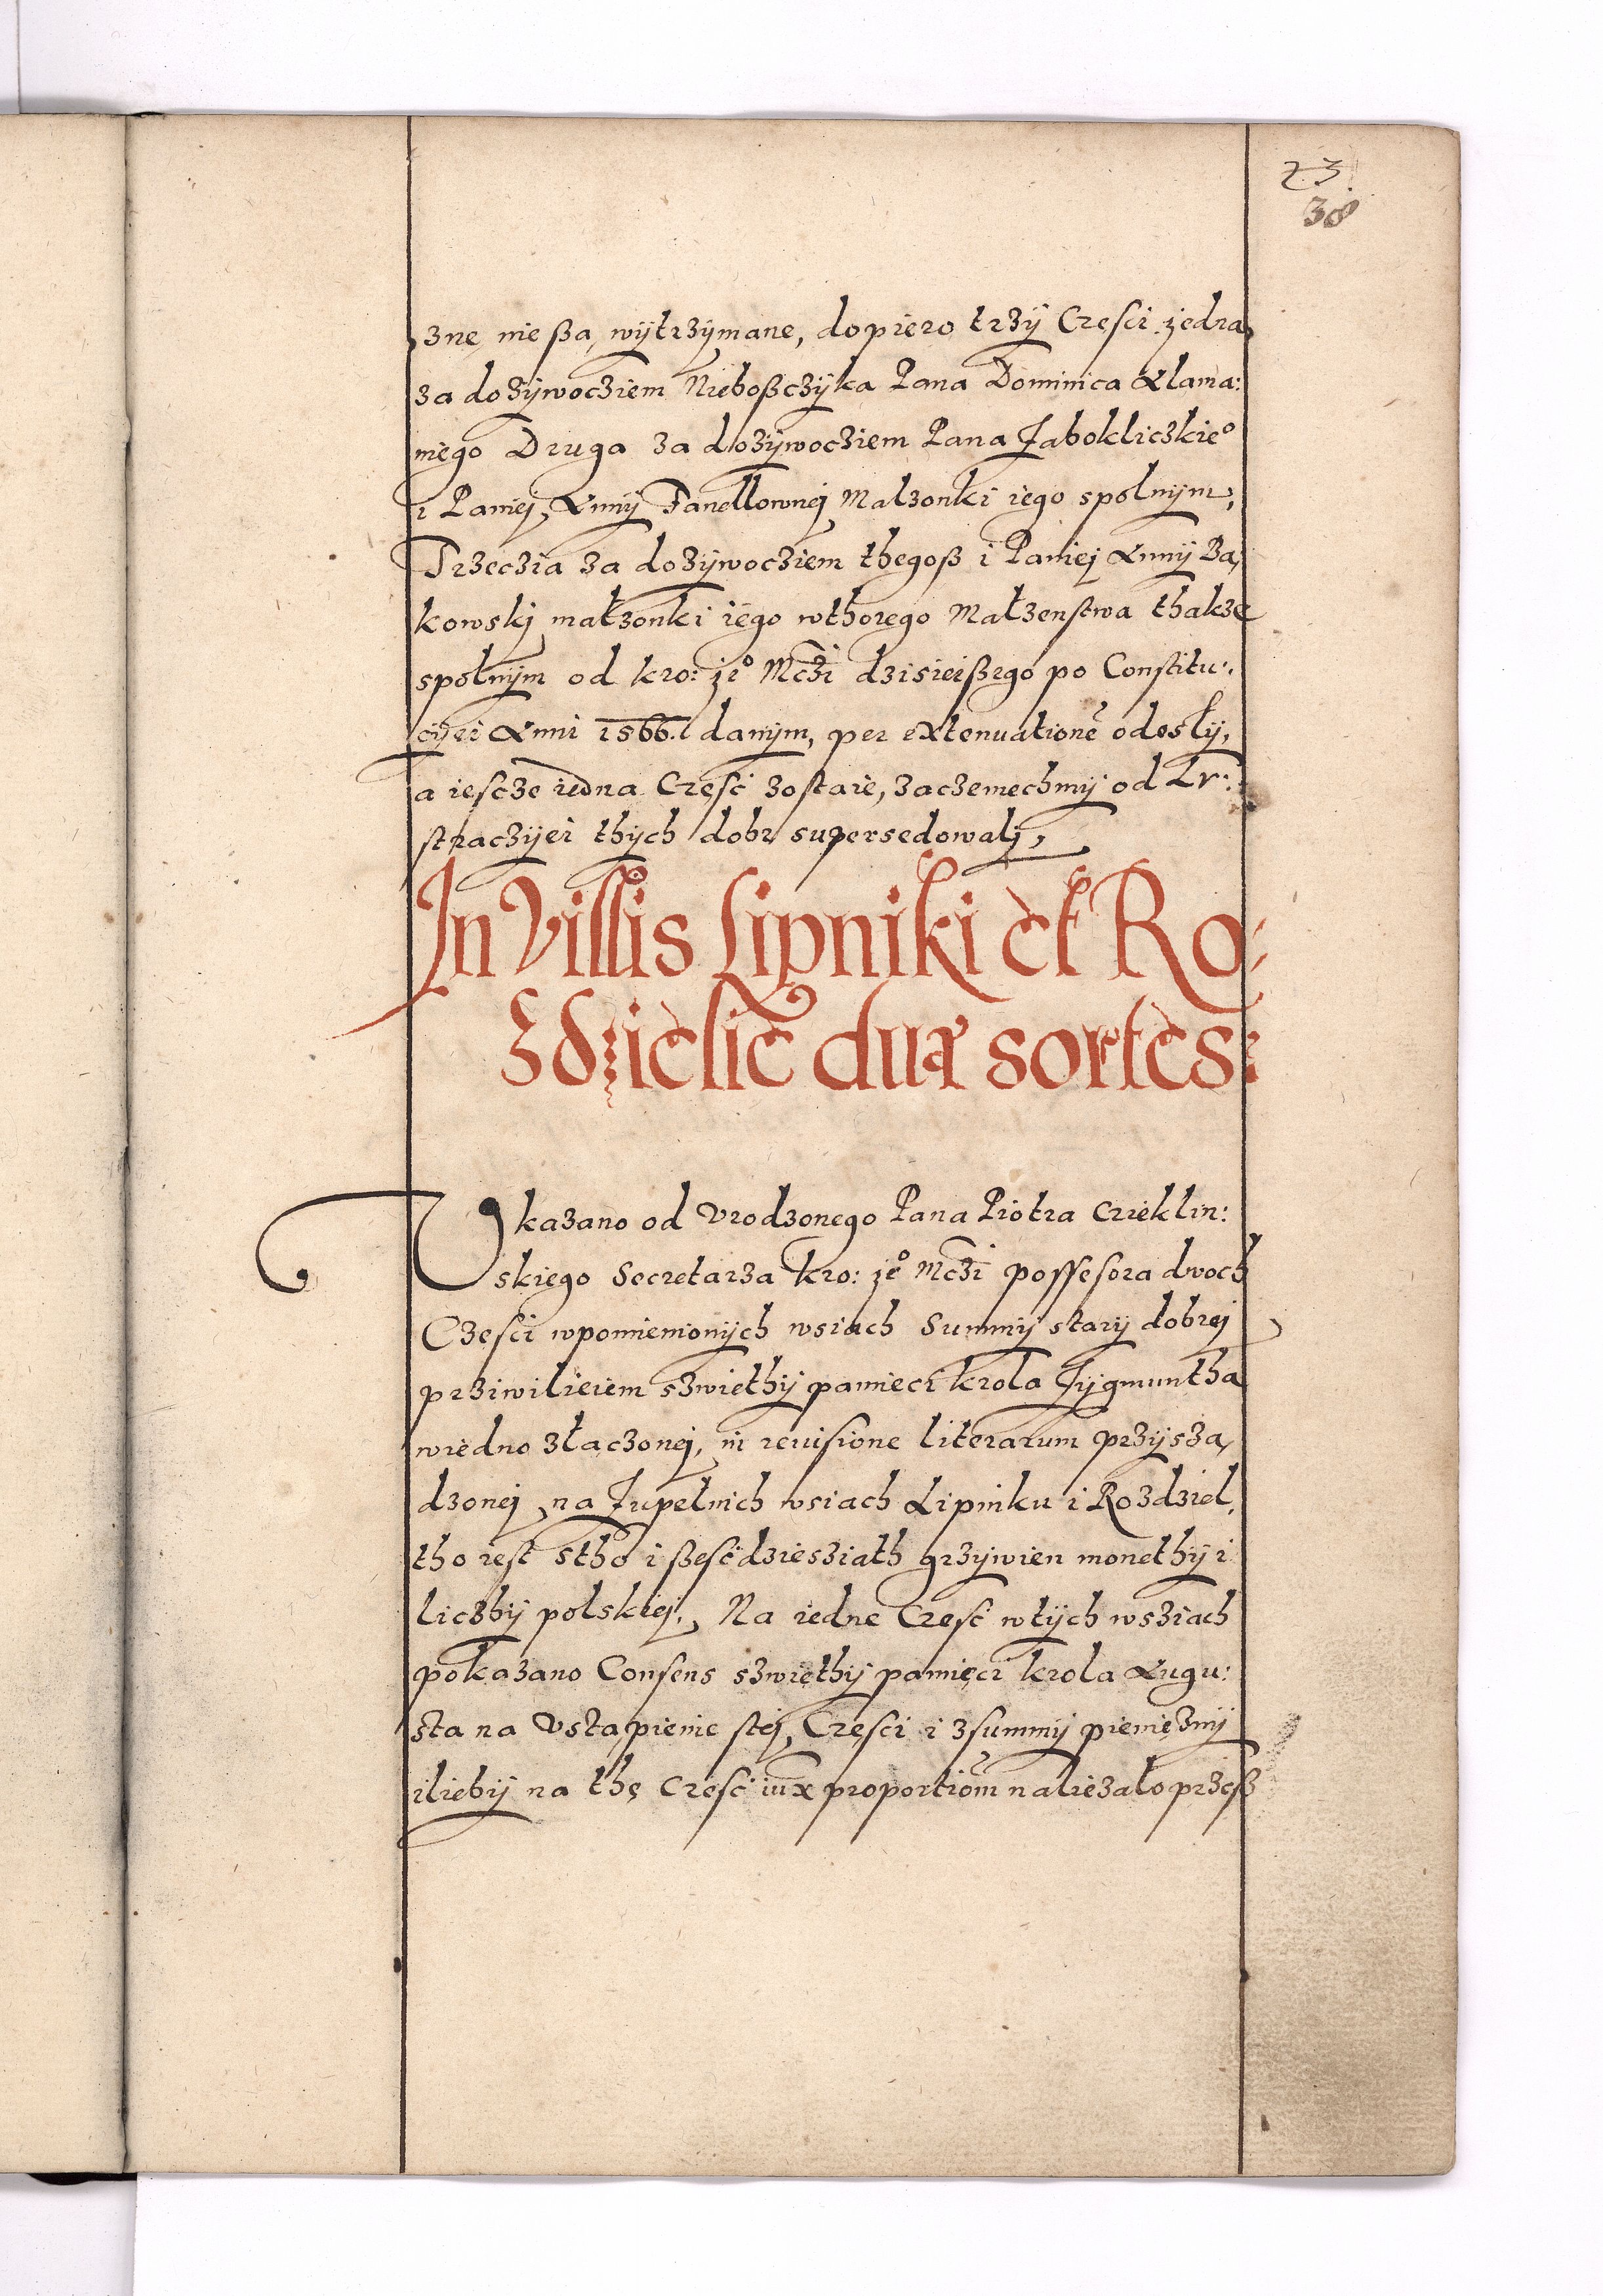 23.
38
zne nie ßą wÿtrzÿmane, dopiero trzÿ Czesci jedna
za dozÿwocziem Nieboßczÿka Pana Dominica Alama:
niego Druga za dozÿwocziem Pana Jabokliczkie°
i Paniej Annÿ Fanellownej Malzonki iego spolnÿm,
Trzeczia za dozÿwocziem thegoß i Paniej Annÿ Bą
kowskj małzonki iego wthorego Małzenstwa thakze
spolnÿm od kro: je° Mczi dzisieißego po Constitu:
cÿei Anni 1566. danÿm, per extenuationē odesłÿ,
a iescze iedna Czesć zostaie, zaczemechmÿ od Lu:
straczÿei thÿch dobr supersedowalj,
In Villis Lipniki et Ro:
zdzielie duæ sortes:
Vkazano od Vrodzonego Pana Piotra Czieklin:
skiego Secretarza kro: je° Mczi possesora dwoch
Czesci wpomienionÿch wsiach Summÿ starÿ dobrej
prziwilieiem szwiethÿ pamieci krola Zÿgmuntha
wiedno złaczonej, in reuisione literarum przÿsza
dzonej na Zupełnich wsiach Lipniku i Rozdziel,
tho iest stho i ßesćdziesziath grzÿwien monethÿ i
liczbÿ polskiej, Na iedne Czesć wtÿch wsziach
pokazano Consens szwiethÿ pamięci krola Augu:
sta na Vstąpienie stej Czesci i zsummÿ pieniezmÿ
iliebÿ na thę Czesć iux proportiōm naliezało przesz